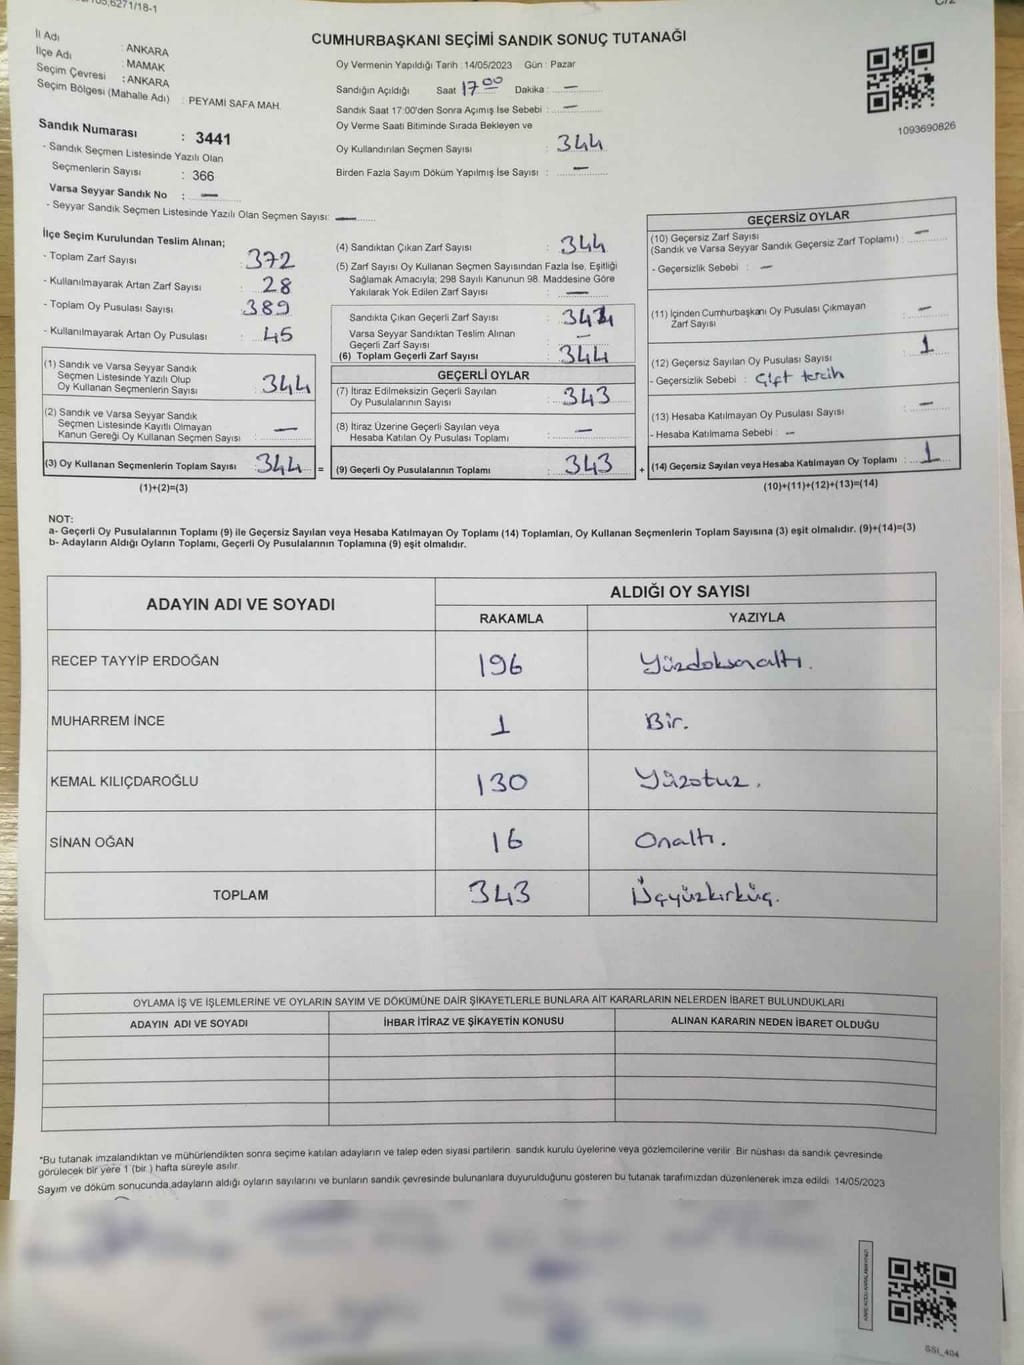 6271/18-1
İl Adı : ANKARA
İlçe Adı : MAMAK
Seçim Çevresi : ANKARA
Seçim Bölgesi (Mahalle Adı) : PEYAMİ SAFA MAH.
Sandık Numarası : 3441
- Sandık Seçmen Listesinde Yazılı Olan
Seçmenlerin Sayısı : 366
Varsa Seyyar Sandık No : —
- Seyyar Sandık Seçmen Listesinde Yazılı Olan Seçmen Sayısı: —
CUMHURBAŞKANI SEÇİMİ SANDIK SONUÇ TUTANAĞI
Oy Vermenin Yapıldığı Tarih : 14/05/2023 Gün : Pazar
Sandığın Açıldığı Saat 17 00 Dakika : —
Sandık Saat 17:00'den Sonra Açımış İse Sebebi : —
Oy Verme Saati Bitiminde Sırada Bekleyen ve
Oy Kullandırılan Seçmen Sayısı : 344
Birden Fazla Sayım Döküm Yapılmış İse Sayısı : —
1093690826
İlçe Seçim Kurulundan Teslim Alınan;
- Toplam Zarf Sayısı : 372
- Kullanılmayarak Artan Zarf Sayısı : 28
- Toplam Oy Pusulası Sayısı : 389
- Kullanılmayarak Artan Oy Pusulası : 45
(1) Sandık ve Varsa Seyyar Sandık
Seçmen Listesinde Yazılı Olup
Oy Kullanan Seçmenlerin Sayısı : 344
(2) Sandık ve Varsa Seyyar Sandık
Seçmen Listesinde Kayıtlı Olmayan
Kanun Gereği Oy Kullanan Seçmen Sayısı : —
(3) Oy Kullanan Seçmenlerin Toplam Sayısı : 344 =
(1)+(2)=(3)
(4) Sandıktan Çıkan Zarf Sayısı : 344
(5) Zarf Sayısı Oy Kullanan Seçmen Sayısından Fazla İse, Eşitliği
Sağlamak Amacıyla; 298 Sayılı Kanunun 98. Maddesine Göre
Yakılarak Yok Edilen Zarf Sayısı : —
Sandıkta Çıkan Geçerli Zarf Sayısı : 344
Varsa Seyyar Sandıktan Teslim Alınan
Geçerli Zarf Sayısı : —
(6) Toplam Geçerli Zarf Sayısı : 344
GEÇERLİ OYLAR
(7) İtiraz Edilmeksizin Geçerli Sayılan
Oy Pusulalarının Sayısı : 343
(8) İtiraz Üzerine Geçerli Sayılan veya
Hesaba Katılan Oy Pusulası Toplamı : —
(9) Geçerli Oy Pusulalarının Toplamı : 343 +
GEÇERSİZ OYLAR
(10) Geçersiz Zarf Sayısı
(Sandık ve Varsa Seyyar Sandık Geçersiz Zarf Toplamı) : —
- Geçersizlik Sebebi : —
(11) İçinden Cumhurbaşkanı Oy Pusulası Çıkmayan
Zarf Sayısı : —
(12) Geçersiz Sayılan Oy Pusulası Sayısı : 1
- Geçersizlik Sebebi : Çift tercih
(13) Hesaba Katılmayan Oy Pusulası Sayısı : —
- Hesaba Katılmama Sebebi : —
(14) Geçersiz Sayılan veya Hesaba Katılmayan Oy Toplamı : 1
(10)+(11)+(12)+(13)=(14)
NOT:
a- Geçerli Oy Pusulalarının Toplamı (9) ile Geçersiz Sayılan veya Hesaba Katılmayan Oy Toplamı (14) Toplamları, Oy Kullanan Seçmenlerin Toplam Sayısına (3) eşit olmalıdır. (9)+(14)=(3)
b- Adayların Aldığı Oyların Toplamı, Geçerli Oy Pusulalarının Toplamına (9) eşit olmalıdır.
ADAYIN ADI VE SOYADI ALDIĞI OY SAYISI
RAKAMLA YAZIYLA
RECEP TAYYİP ERDOĞAN 196 Yüzdoksanaltı.
MUHARREM İNCE 1 Bir.
KEMAL KILIÇDAROĞLU 130 Yüzotuz.
SİNAN OĞAN 16 Onaltı.
TOPLAM 343 Üçyüzkırküç.
OYLAMA İŞ VE İŞLEMLERİNE VE OYLARIN SAYIM VE DÖKÜMÜNE DAİR ŞİKAYETLERLE BUNLARA AİT KARARLARIN NELERDEN İBARET BULUNDUKLARI
ADAYIN ADI VE SOYADI İHBAR İTİRAZ VE ŞİKAYETİN KONUSU ALINAN KARARIN NEDEN İBARET OLDUĞU
*Bu tutanak imzalandıktan ve mühürlendikten sonra seçime katılan adayların ve talep eden siyasi partilerin sandık kurulu üyelerine veya gözlemcilerine verilir. Bir nüshası da sandık çevresinde
görülecek bir yere 1 (bir ) hafta süreyle asılır.
Sayım ve döküm sonucunda,adayların aldığı oyların sayılarını ve bunların sandık çevresinde bulunanlara duyurulduğunu gösteren bu tutanak tarafımızdan düzenlenerek imza edildi. 14/05/2023
SSİ_404